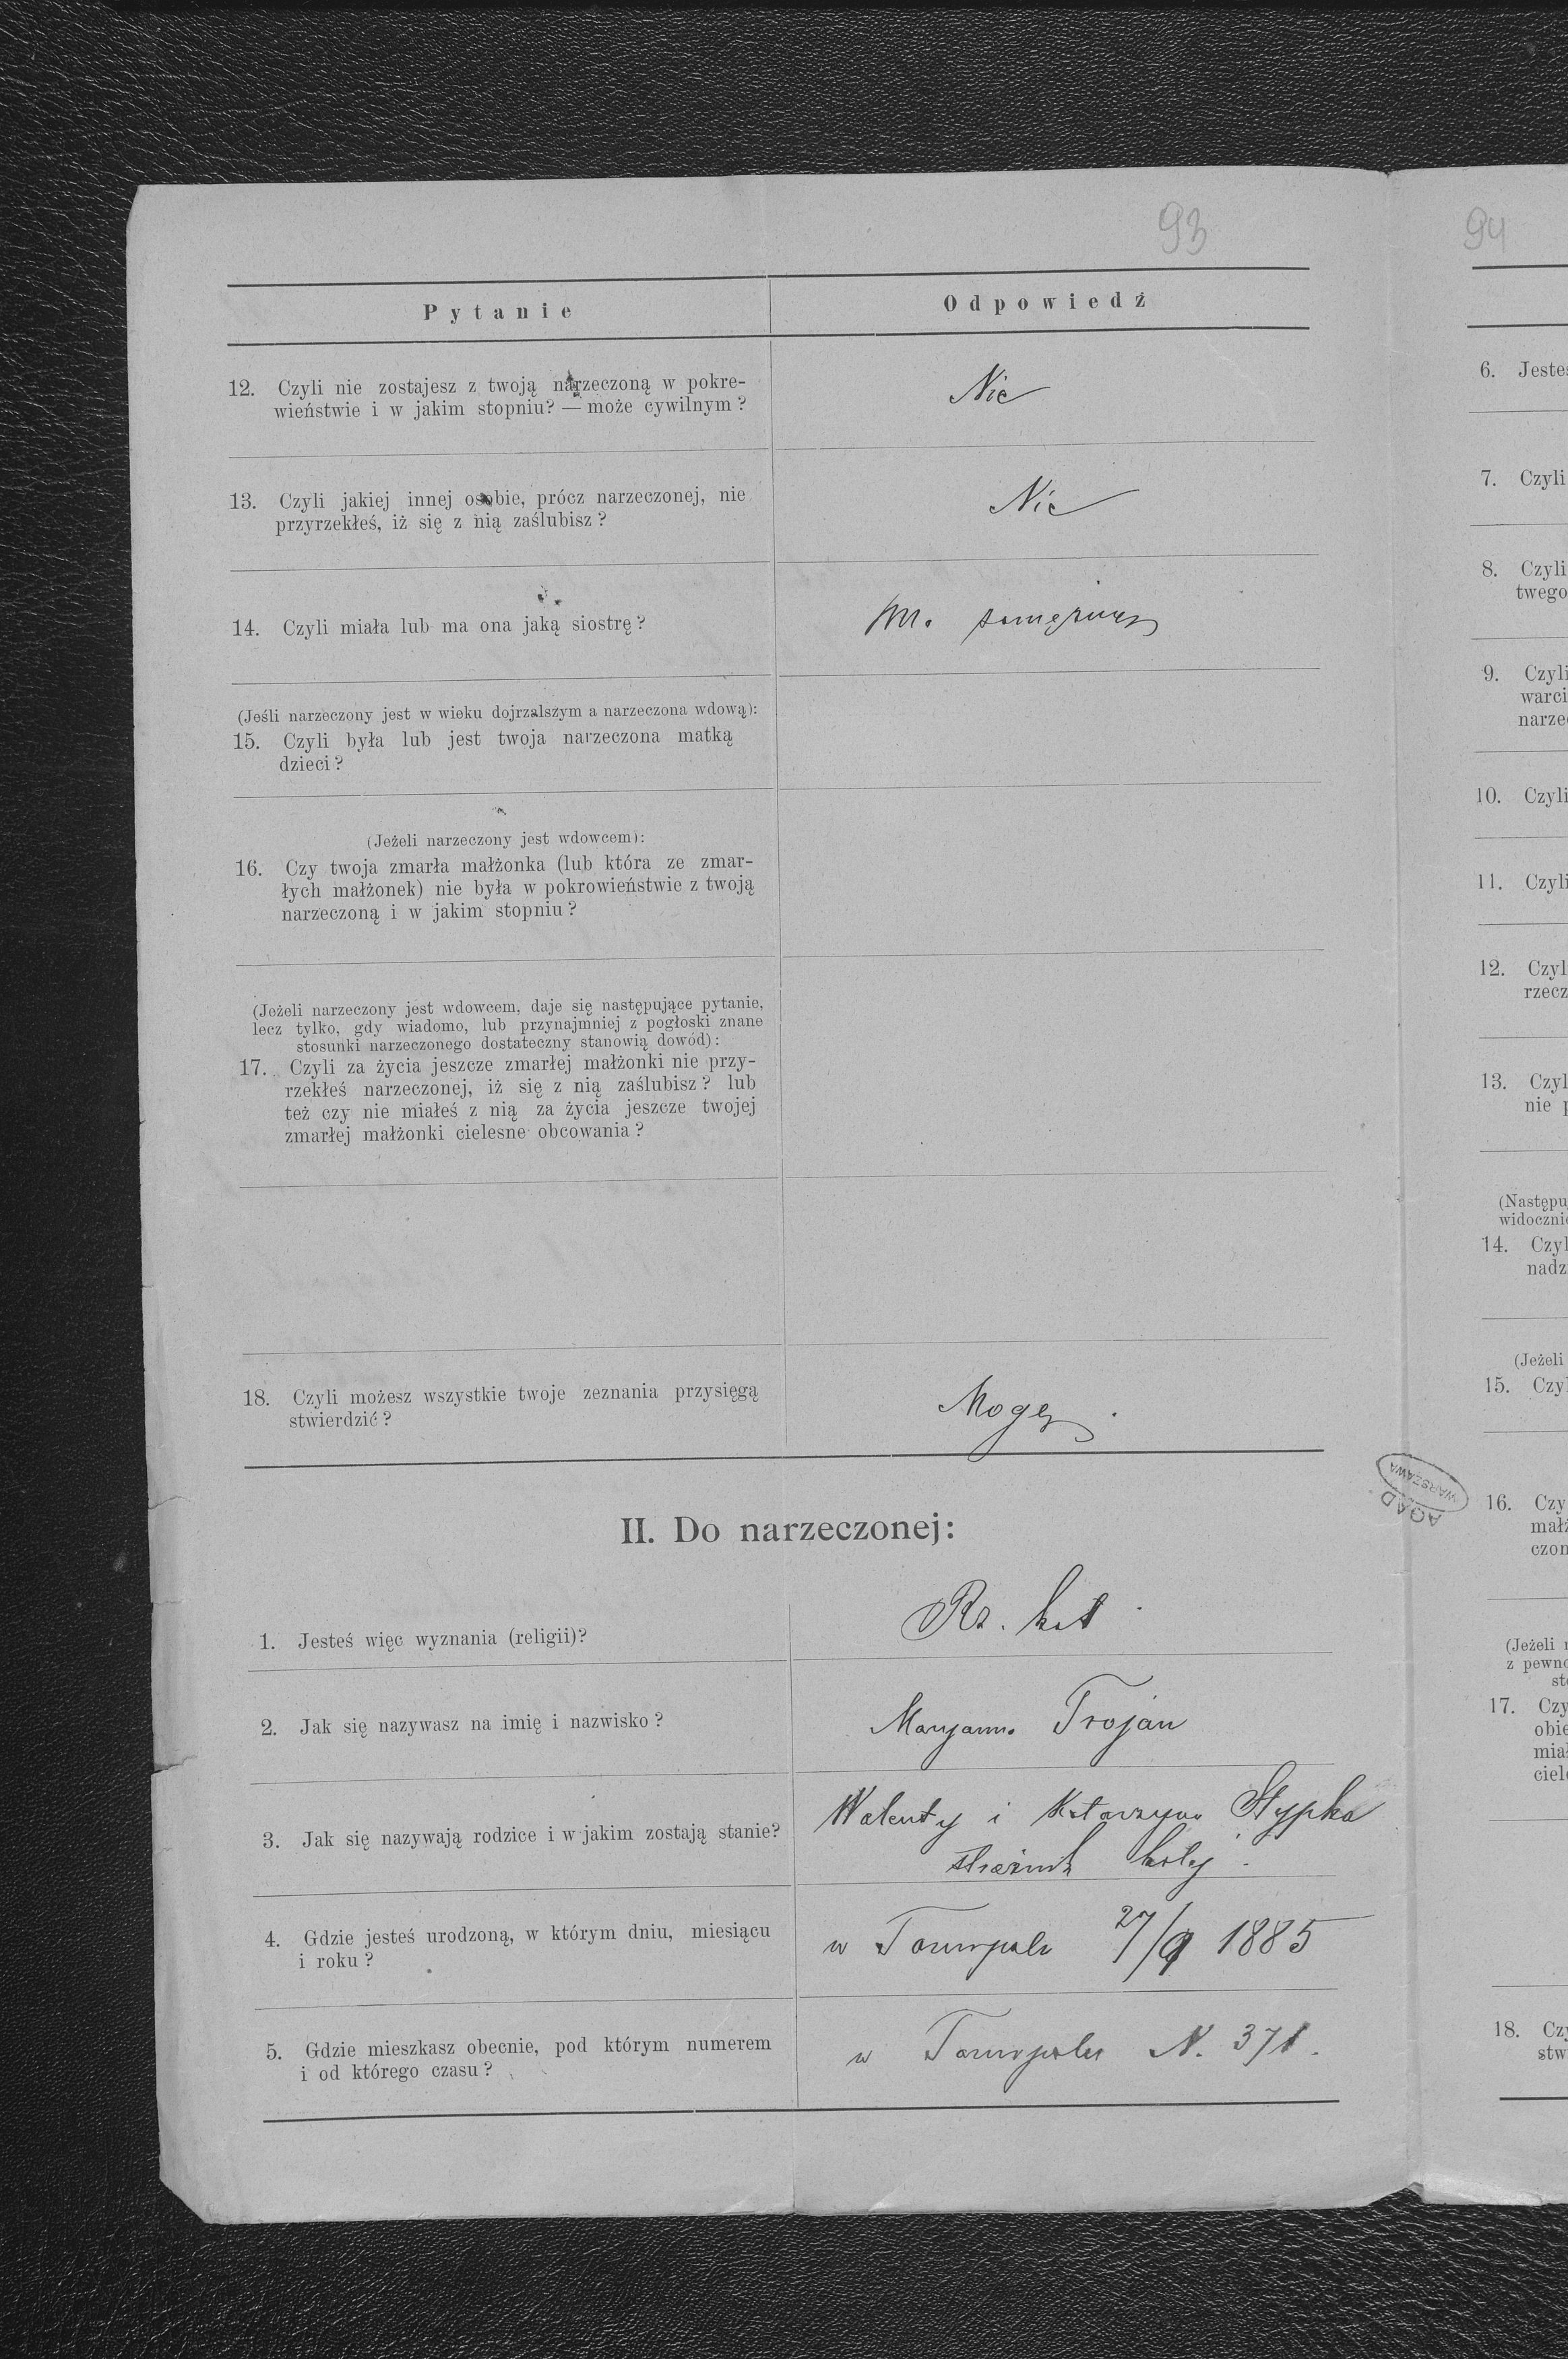 93
94
Pytanie
Odpowiedź
12. Czyli nie zostajesz z twoją narzeczoną w pokre-
wieństwie i w jakim stopniu? — może cywilnym?
Nie
13. Czyli jakiej innej osobie, prócz narzeczonej, nie
przyrzekłeś, iż się z nią zaślubisz?
Nie
14. Czyli miała lub ma ona jaką siostrę?
Ma zamężną
(Jeśli narzeczony jest w wieku dojrzalszym a narzeczona wdową):
15. Czyli była lub jest twoja narzeczona matką
dzieci?
(Jeżeli narzeczony jest wdowcem):
16. Czy twoja zmarła małżonka (lub która ze zmar-
łych małżonek) nie była w pokrowieństwie z twoją
narzeczoną i w jakim stopniu?
(Jeżeli narzeczony jest wdowcem, daje się następujące pytanie,
lecz tylko, gdy wiadomo, lub przynajmniej z pogłoski znane
stosunki narzeczonego dostateczny stanowią dowód):
17. Czyli za życia jeszcze zmarłej małżonki nie przy-
rzekłeś narzeczonej, iż się z nią zaślubisz? lub
też czy nie miałeś z nią za życia jeszcze twojej
zmarłej małżonki cielesne obcowania?
18. Czyli możesz wszystkie twoje zeznania przysięgą
stwierdzić?
Mogę.
II. Do narzeczonej:
1. Jesteś więc wyznania (religii)?
Rz. kat.
2. Jak się nazywasz na imię i nazwisko?
Maryanna Trojan
3. Jak się nazywają rodzice i w jakim zostają stanie?
Walenty i Katarzyna Stypka
strażnik kolej.
4. Gdzie jesteś urodzoną, w którym dniu, miesiącu
i roku?
w Tarnopolu 27/9 1885
5. Gdzie mieszkasz obecnie, pod którym numerem
i od którego czasu?
w Tarnopolu N. 371.
AGAD
WARSZAWA
6. Jesteś
7. Czyli
8. Czyli
twego
9. Czyli
warci
narze
10. Czyli
11. Czyli
12. Czyl
rzecz
13. Czyl
nie p
(Następu
widoczni
14. Czyl
nadz
(Jeżeli
15. Czy
16. Czy
małż
czon
(Jeżeli
z pewno
st
17. Czy
obie
mia
ciel
18. Czy
stw